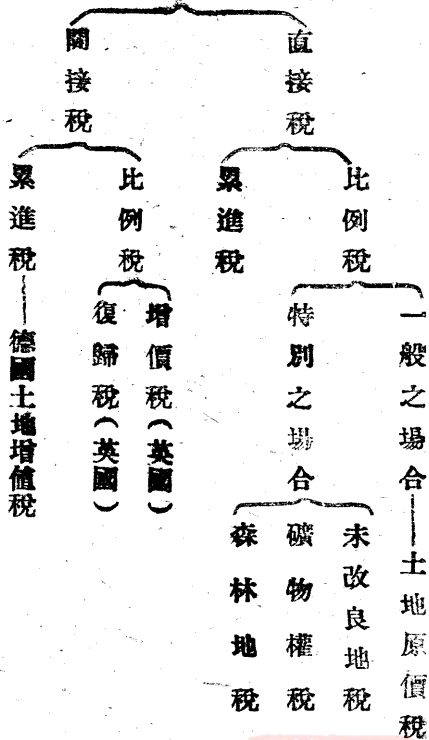 直接稅
比例稅
一般之場合——土地原價稅
特別之場合
未改良地稅
礦物權稅
森林地稅
累進稅
間接稅
比例稅
增價稅(英國)
復歸稅(英國)
累進稅——德國土地增値稅